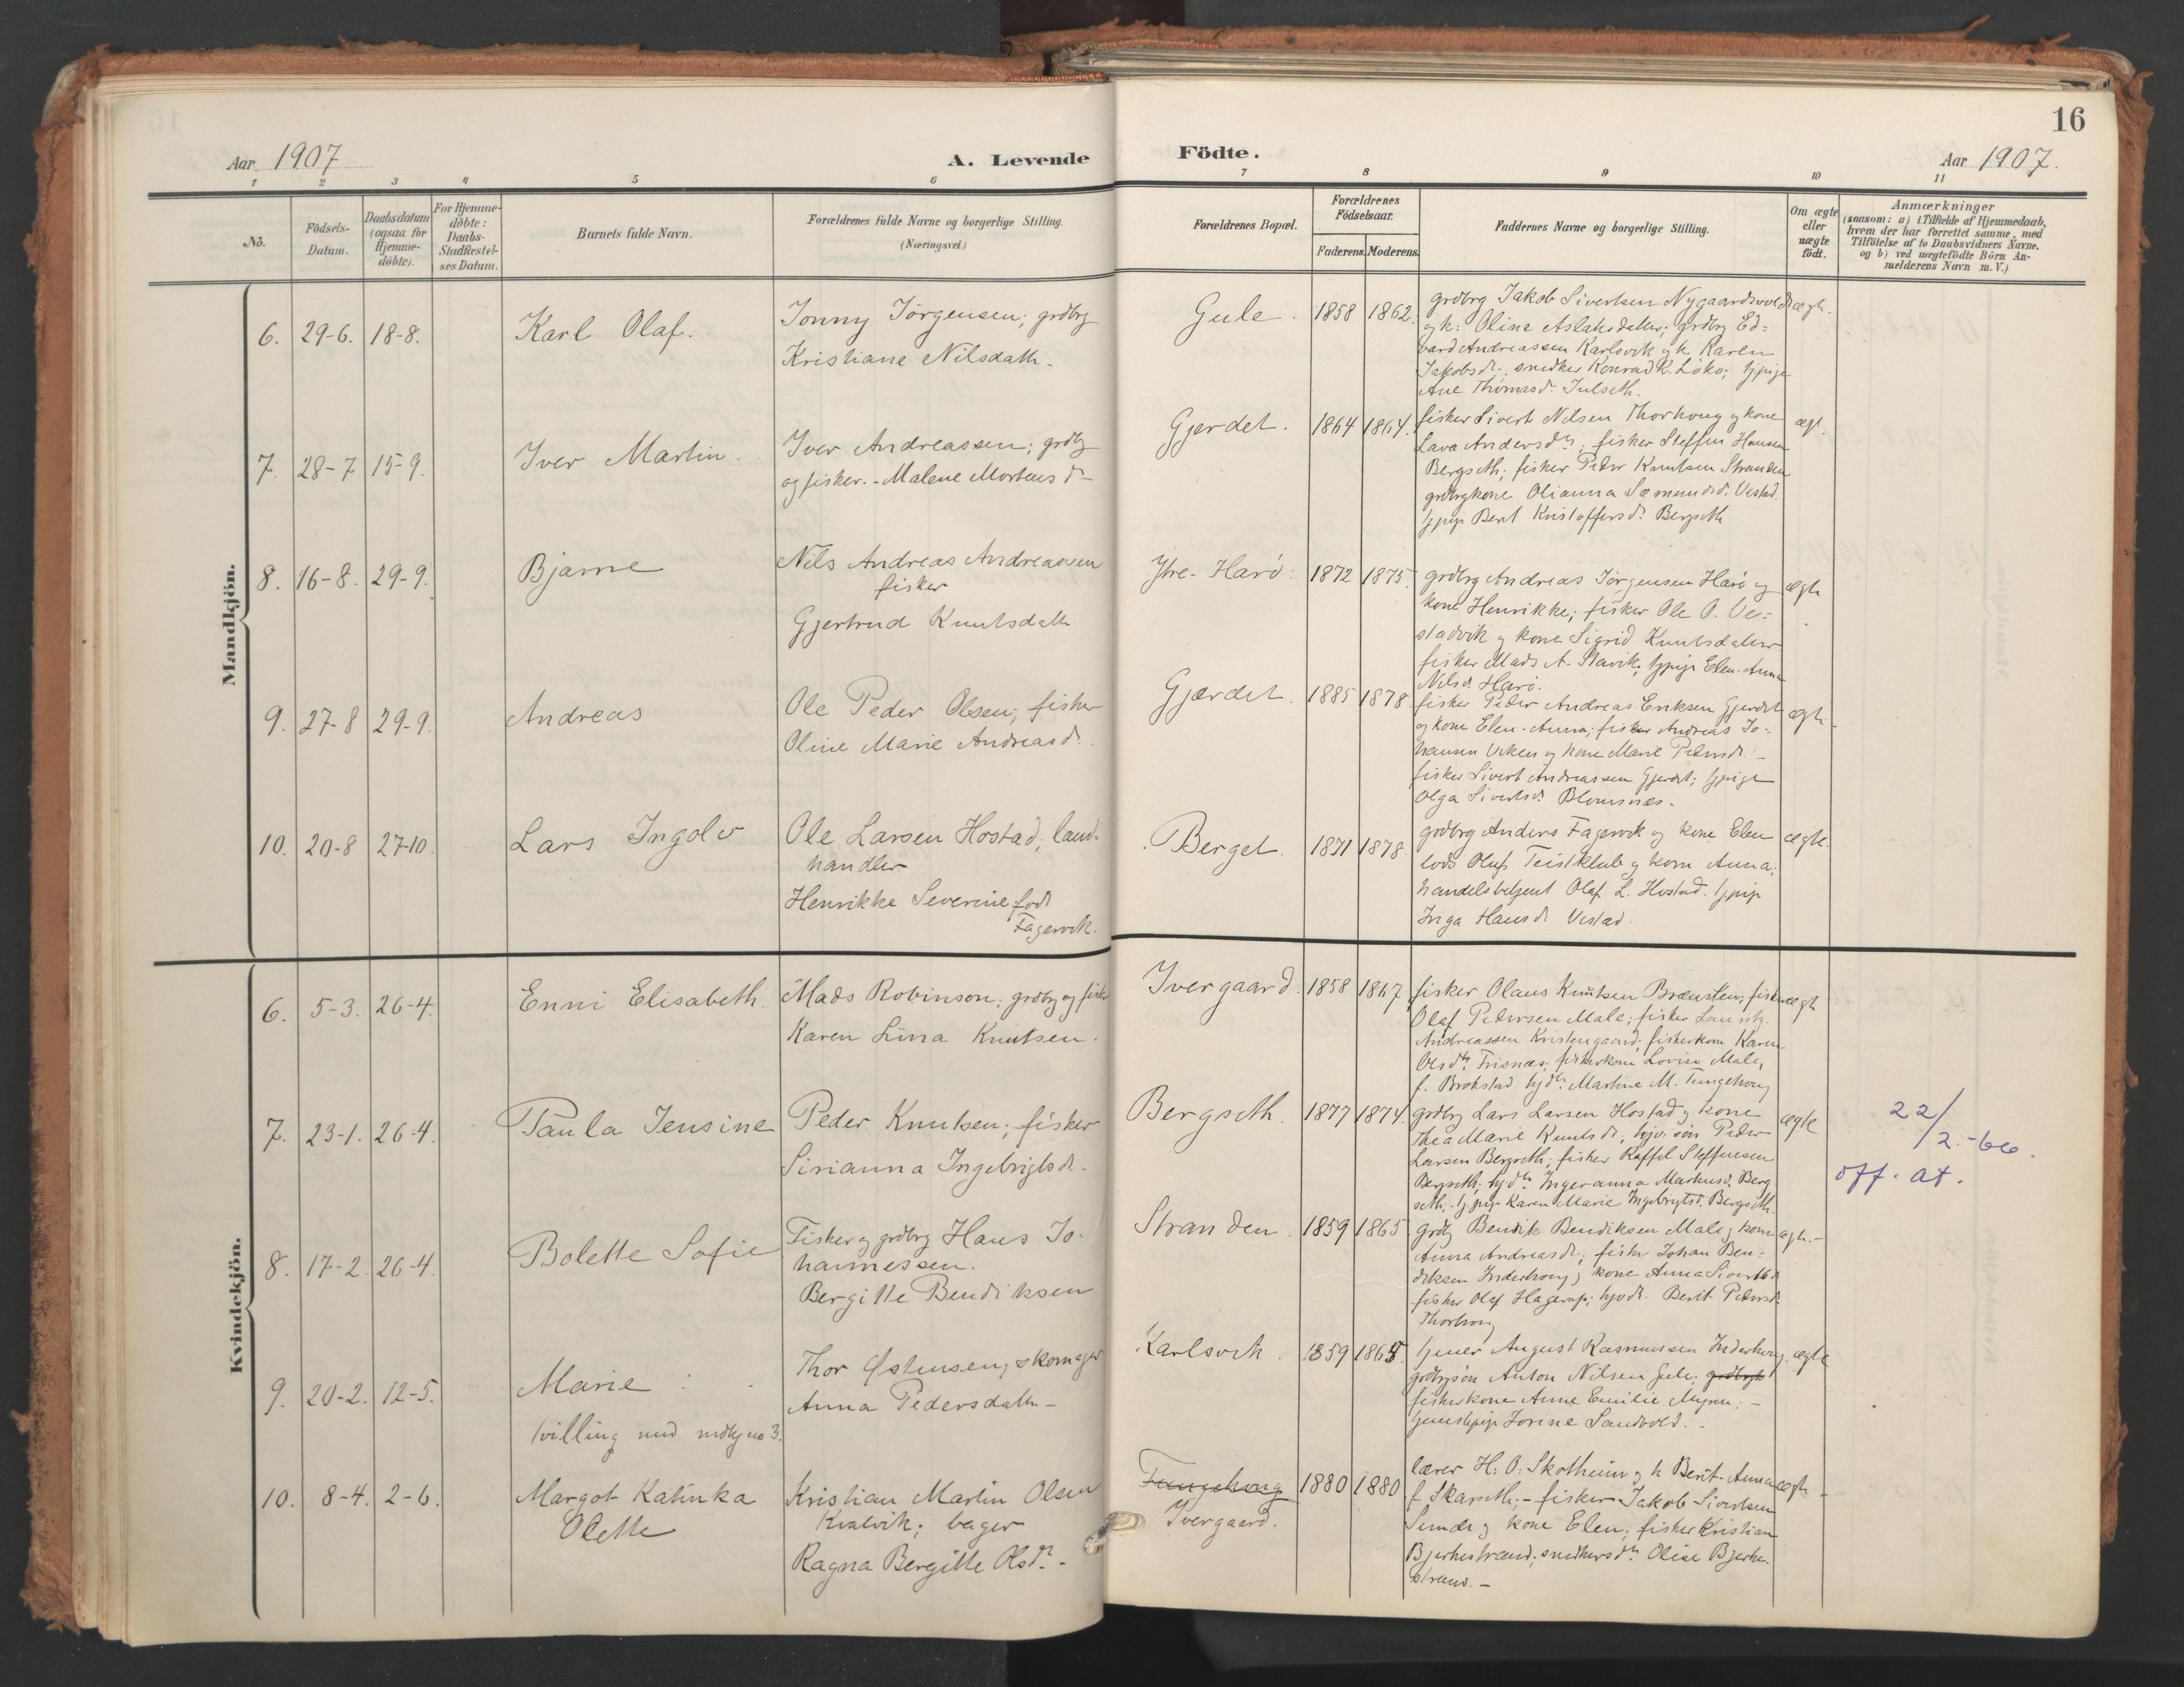 16
Aar 1907
A. Levende
Födte.
Aar 1907.
1 2 3 4 5 6 7 8 9 10 11
No.
Födsels-
Datum.
Daabsdatum
(ogsaa for
Hjemme-
döbte).
For Hjemme-
döbte:
Daabs-
Stadfæstel-
ses Datum.
Barnets fulde Navn.
Forældrenes fulde Navne og borgerlige Stilling.
(Næringsvei.)
Forældrenes Bopæl.
Forældrenes
Födselsaar.
Faderens. Moderens.
Faddernes Navne og borgerlige Stilling.
Om ægte
eller
uægte
födt.
Anmærkninger
(saasom: a) i Tilfælde af Hjemmedaab,
hvem der har forrettet samme, med
Tilföielse af to Daabsvidners Navne.
og b) ved uægtefödte Börn An-
melderens Navn m. V.)
Mandkjön.
6. 29-6. 18-8.
Karl Olaf.
Jonny Jörgensen; grdbrg
Kristiane Nilsdath.
Gule. 1858 1862.
grdbrg Jakob Sivertsen Nygaardsvold
og k: Oline Aslaksdatter; grdbrg Ed=
vard Andreassen Karlsvik og k. Karen
Jakobsdr. snedker Konrad K. Löko; tjpige
Ane Thomasdr. Julseth.
ægt.
7. 28-7 15-9.
Iver Martin
Iver Andreassen; grdbg
og fisker. - Malene Mortensdr -
Gjerdet. 1864 1864.
fisker Sivert Nilsen Thorhoug og kone
Lava Andersdtr; fisker Steffen Hansen
Bergseth; fisker Peder Knutsen Stranden
grdbrgkone Olianna Sæmundsd. Vestad.
tjpige Berit Kristoffersdr. Bergseth
ægt.
8. 16-8. 29-9.
Bjarne
Nils Andreas Andreassen
fisker
Gjertrud Knutsdath
Ytre-Harö. 1872 1875
grdbrg Andreas Jörgensen Harö og
kone Henrikke; fisker Ole O. Ve=
stadvik og kone Sigrid Knutsdatter
fisker Mads A. Slavik; tjpige Elen-Anna
Nilsd. Harö.
ægte
9. 27-8 29-9.
Andreas
Ole Peder Olsen; fisker
Oline Marie Andreasdr.
Gjærdet. 1885 1878.
fisker Peder Andreas Eriksen Gjerdet
og kone Elen-Anna; fisker Andreas Jo=
hansen Viken og kone Marie Petersdr. -
fisker Sivert Andreassen Gjerdet; tjpige
Olga Sivertsdr. Blomsnæs.
ægte -
10. 20-8 27-10.
Lars Ingolv
Ole Larsen Hostad; land-
handler
Henrikke Severine föd
Fagervik.
Berget. 1871 1878.
grdbrg Anders Fagervik og kone Elen
lods Oluf Teistklub og kone Anna;
handelsbetjent Olaf L. Hostad. tjpige
Inga Hansdr. Vestad.
ægte.
Kvindekjön.
6. 5-3. 26-4.
Enni Elisabeth.
Mads Robinson; grdbrg og fisker
Karen Lina Knutsen.
Ivergaard. 1858 1867
fisker Olaus Knutsen Brænsten; fisker
Olaf Pedersen Male; fisker Lauritz
Andreassen Kristengaard; fiskerkone Karen
Olsdtr Frisnæs; fiskerkone Lovise Male,
f. Brokstad tjdtr. Martine M. Tungehoug
ægt
7. 23-1. 26-4.
Paula Jensine
Peder Knutsen; fisker
Sirianna Ingebrigtsdr. -
Bergseth. 1877 1874.
grdbrg Lars Larsen Hostad og kone
Thea Marie Knutsdr; tjv. sön Peder
Larsen Bergseth; fisker Raffel Steffensen
Bergseth; tjdtr. Ingeranna Markusd. Berg
seth; - tjpige Karen Marie Ingebrigtsd. Bergseth
ægte
22/2.-60.
off. at.
8. 17-2. 26-4.
Bolette Sofie
Fisker og grdbrg Hans Jo-
hannessen.
Bergitte Bendiksen
Stranden. 1859 1865.
grdbg Bendik Bendiksen Male og kone
Anna Andreasdr; fisker Johan Ben=
diksen Inderhoug og kone Anna Sivertsd
fisker Olaf Hagerup; tjvdr. Berit Pedersdr
Thorhoug
ægte. -
9. 20-2. 12-5.
Marie
tvilling med mdkj no 3.
Thor Østensen, skomager
Anna Pedersdath -
Karlsvik. 1859 1865.
tjener August Rasmussen Inderhoug.
grdbrgsön Anton Nilsen Gule;
fiskerkone Anne Emilie Myren; -
tjenestepige Jorine Sandvold. -
ægte
10. 8-4. 2-6.
Margot Katinka
Olette
Kristian Martin Olsen
Kvalvik; bager
Ragna Bergitte Olsdr. -
Tungehoug
Ivergaard.
1880 1880
lærer H: O: Skotheim og h Berit-Anna
f Skarseth; - fisker Jakob Sivertsen
Sunde og kone Elen; fisker Kristian
Bjerkestrand; snedkersdtr Olise Bjerke-
strand. -
ægte -